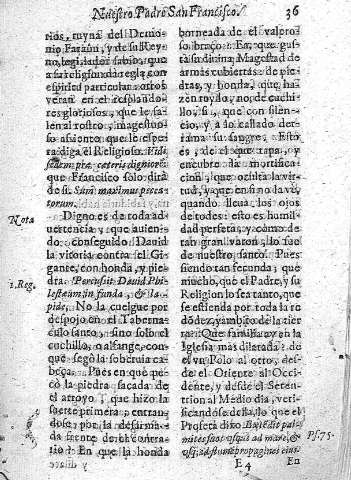 Nuestro Padre San Francisco.
36
rios, ruyna del Demo-
nio Faraon, y de su Reyno,
legislador sabio, que
a su religion da regla con
espiritu particular: otros
veran en el resplando-
res gloriosos, que le sa-
len al rostro, magestuo-
so assiento que le respe-
ta diga el Religioso.
que Francisco solo dirà
de si. Sum maximus pecca-
torum.
Nota
Digno es de toda ad-
uertencia y que auien-
do conseguido Dauid
la vitoria contra el Gi-
gante, con honda, y pie-
1. Reg.
dra. Percussit Dauid Phi-
listæum in funda, & la-
pide, No la cuelgue por
despojo en el Taberna-
culo santo, sino solo el
cuchillo, o alfange, con
que segò la soberuia ca-
beça. Pues en que pe-
cò la piedra sacada de
el arroyo, que hizo la
suerte primera, entran-
dose, por la desarma-
da frente de el contra-
rio? En que la honda
borneada de el valero-
so braço? En, que gus-
ta su diuina Magestad de
armas cubiertas: de pie-
dras, y honda, que ha-
zen roydo, no, de cuchi-
llo, si, que con silen-
cio, y a lo callado der-
rama su sangre. Esto
es, de el que tapa, y
encubre la mortifica-
cion, que oculta la vir-
tud, y que en si no la vè,
quando lleua, los ojos
de todos: esto es humil-
dad perfeta, y como de
tan gran varon, lo fue
de nuestro santo. Pues
siendo tan fecunda; que
mucho, que el Padre, y su
Religion lo sea tanto, que
se estienda por toda la
redõdez, y ambito de la tier-
ra? Que familia ay en la
Iglesia mas dilatada? de
el vn Polo al otro, des-
de el Oriente al Occi-
dente, y desde el Seten-
trional Medio dia, veri-
ficandose della, lo que el
Profeta dixo. Extendit pal-
mites suos vsque ad mare, &
Ps. 75.
vsq; ad flumen propagines eius.
E 4
En